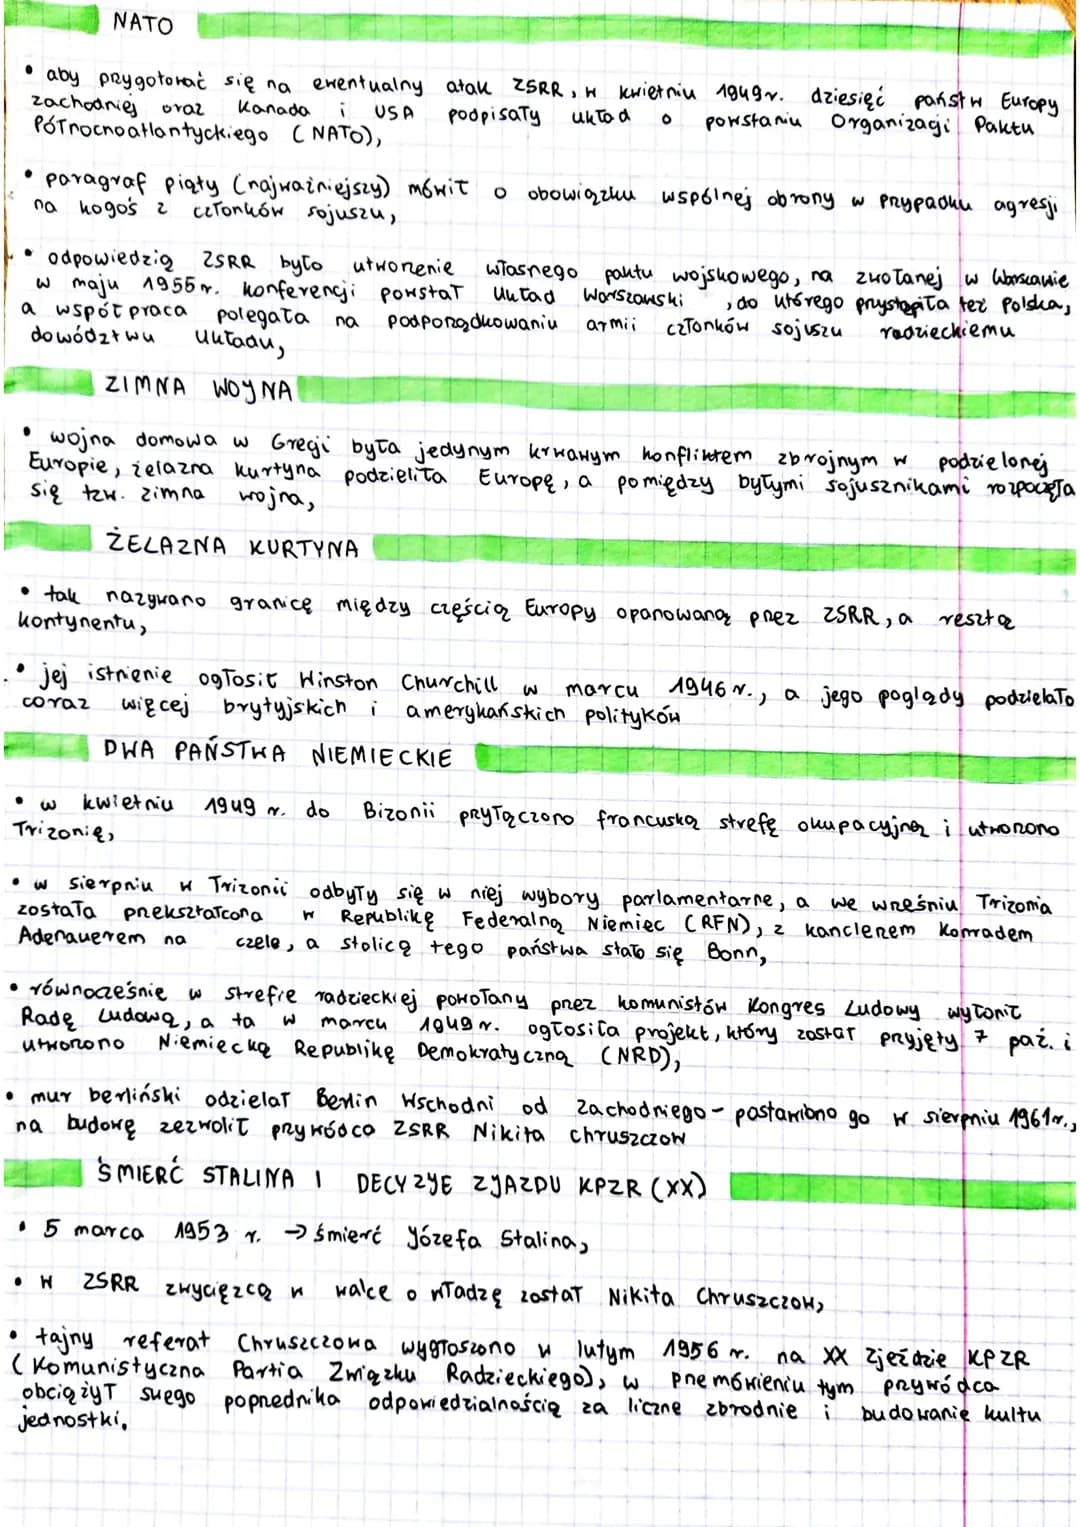 NATO
• aby przygotować się na ewentualny atak ZSRR, w kwietniu 1949r. dziesięć państw Europy
zachodniej oraz Kanada i USA podpisały układ o powstaniu Organizacji Paktu
Północnoatlantyckiego (NATO),
• paragraf piąty (najważniejszy) mówił o obowiązku wspólnej obrony w przypadku agresji
na kogoś z członków sojuszu,
• odpowiedzią ZSRR było utworzenie własnego paktu wojskowego, na zwołanej w Warszawie
w maju 1955r. konferencji powstał Układ Warszawski, do którego przystąpiła też Polska,
a współpraca polegała na podporządkowaniu armii członków sojuszu radzieckiemu
dowództwu Układu,
ZIMNA WOJNA
• wojna domowa w Grecji była jedynym krwawym konfliktem zbrojnym w podzielonej
Europie, żelazna kurtyna podzieliła Europę, a pomiędzy byłymi sojusznikami rozpoczęła
się tzw. zimna wojna,
ŻELAZNA KURTYNA
• tak nazywano granicę między częścią Europy opanowaną przez ZSRR, a resztą
kontynentu,
• jej istnienie ogłosił Winston Churchill w marcu 1946 r., a jego poglądy podzielało
coraz więcej brytyjskich i amerykańskich polityków
DWA PAŃSTWA NIEMIECKIE
• w kwietniu 1949 r. do Bizonii przyłączono francuską strefę okupacyjną i utworzono
Trizonię,
• w sierpniu w Trizonii odbyły się w niej wybory parlamentarne, a we wrześniu Trizonia
została przekształcona w Republikę Federalną Niemiec (RFN), z kanclerzem Konradem
Adenauerem na czele, a stolicą tego państwa stało się Bonn,
• równocześnie w strefie radzieckiej powołany przez komunistów Kongres Ludowy wyłonił
Radę Ludową, a ta w marcu 1949 r. ogłosiła projekt, który został przyjęty 7 paź. i
utworzono Niemiecką Republikę Demokratyczną (NRD),
• mur berliński odzielał Berlin Wschodni od Zachodniego - postawiono go w sierpniu 1961r.,
na budowę zezwolił przywódca ZSRR Nikita Chruszczow
ŚMIERĆ STALINA I DECYZJE ZJAZDU KPZR (XX)
• 5 marca 1953 r. → śmierć Józefa Stalina,
• W ZSRR zwycięzcą w walce o władzę został Nikita Chruszczow,
• tajny referat Chruszczowa wygłoszono w lutym 1956 r. na XX Zjeździe KPZR
(Komunistyczna Partia Związku Radzieckiego), w przemówieniu tym przywódca
obciążył swego poprzednika odpowiedzialnością za liczne zbrodnie i budowanie kultu
jednostki.